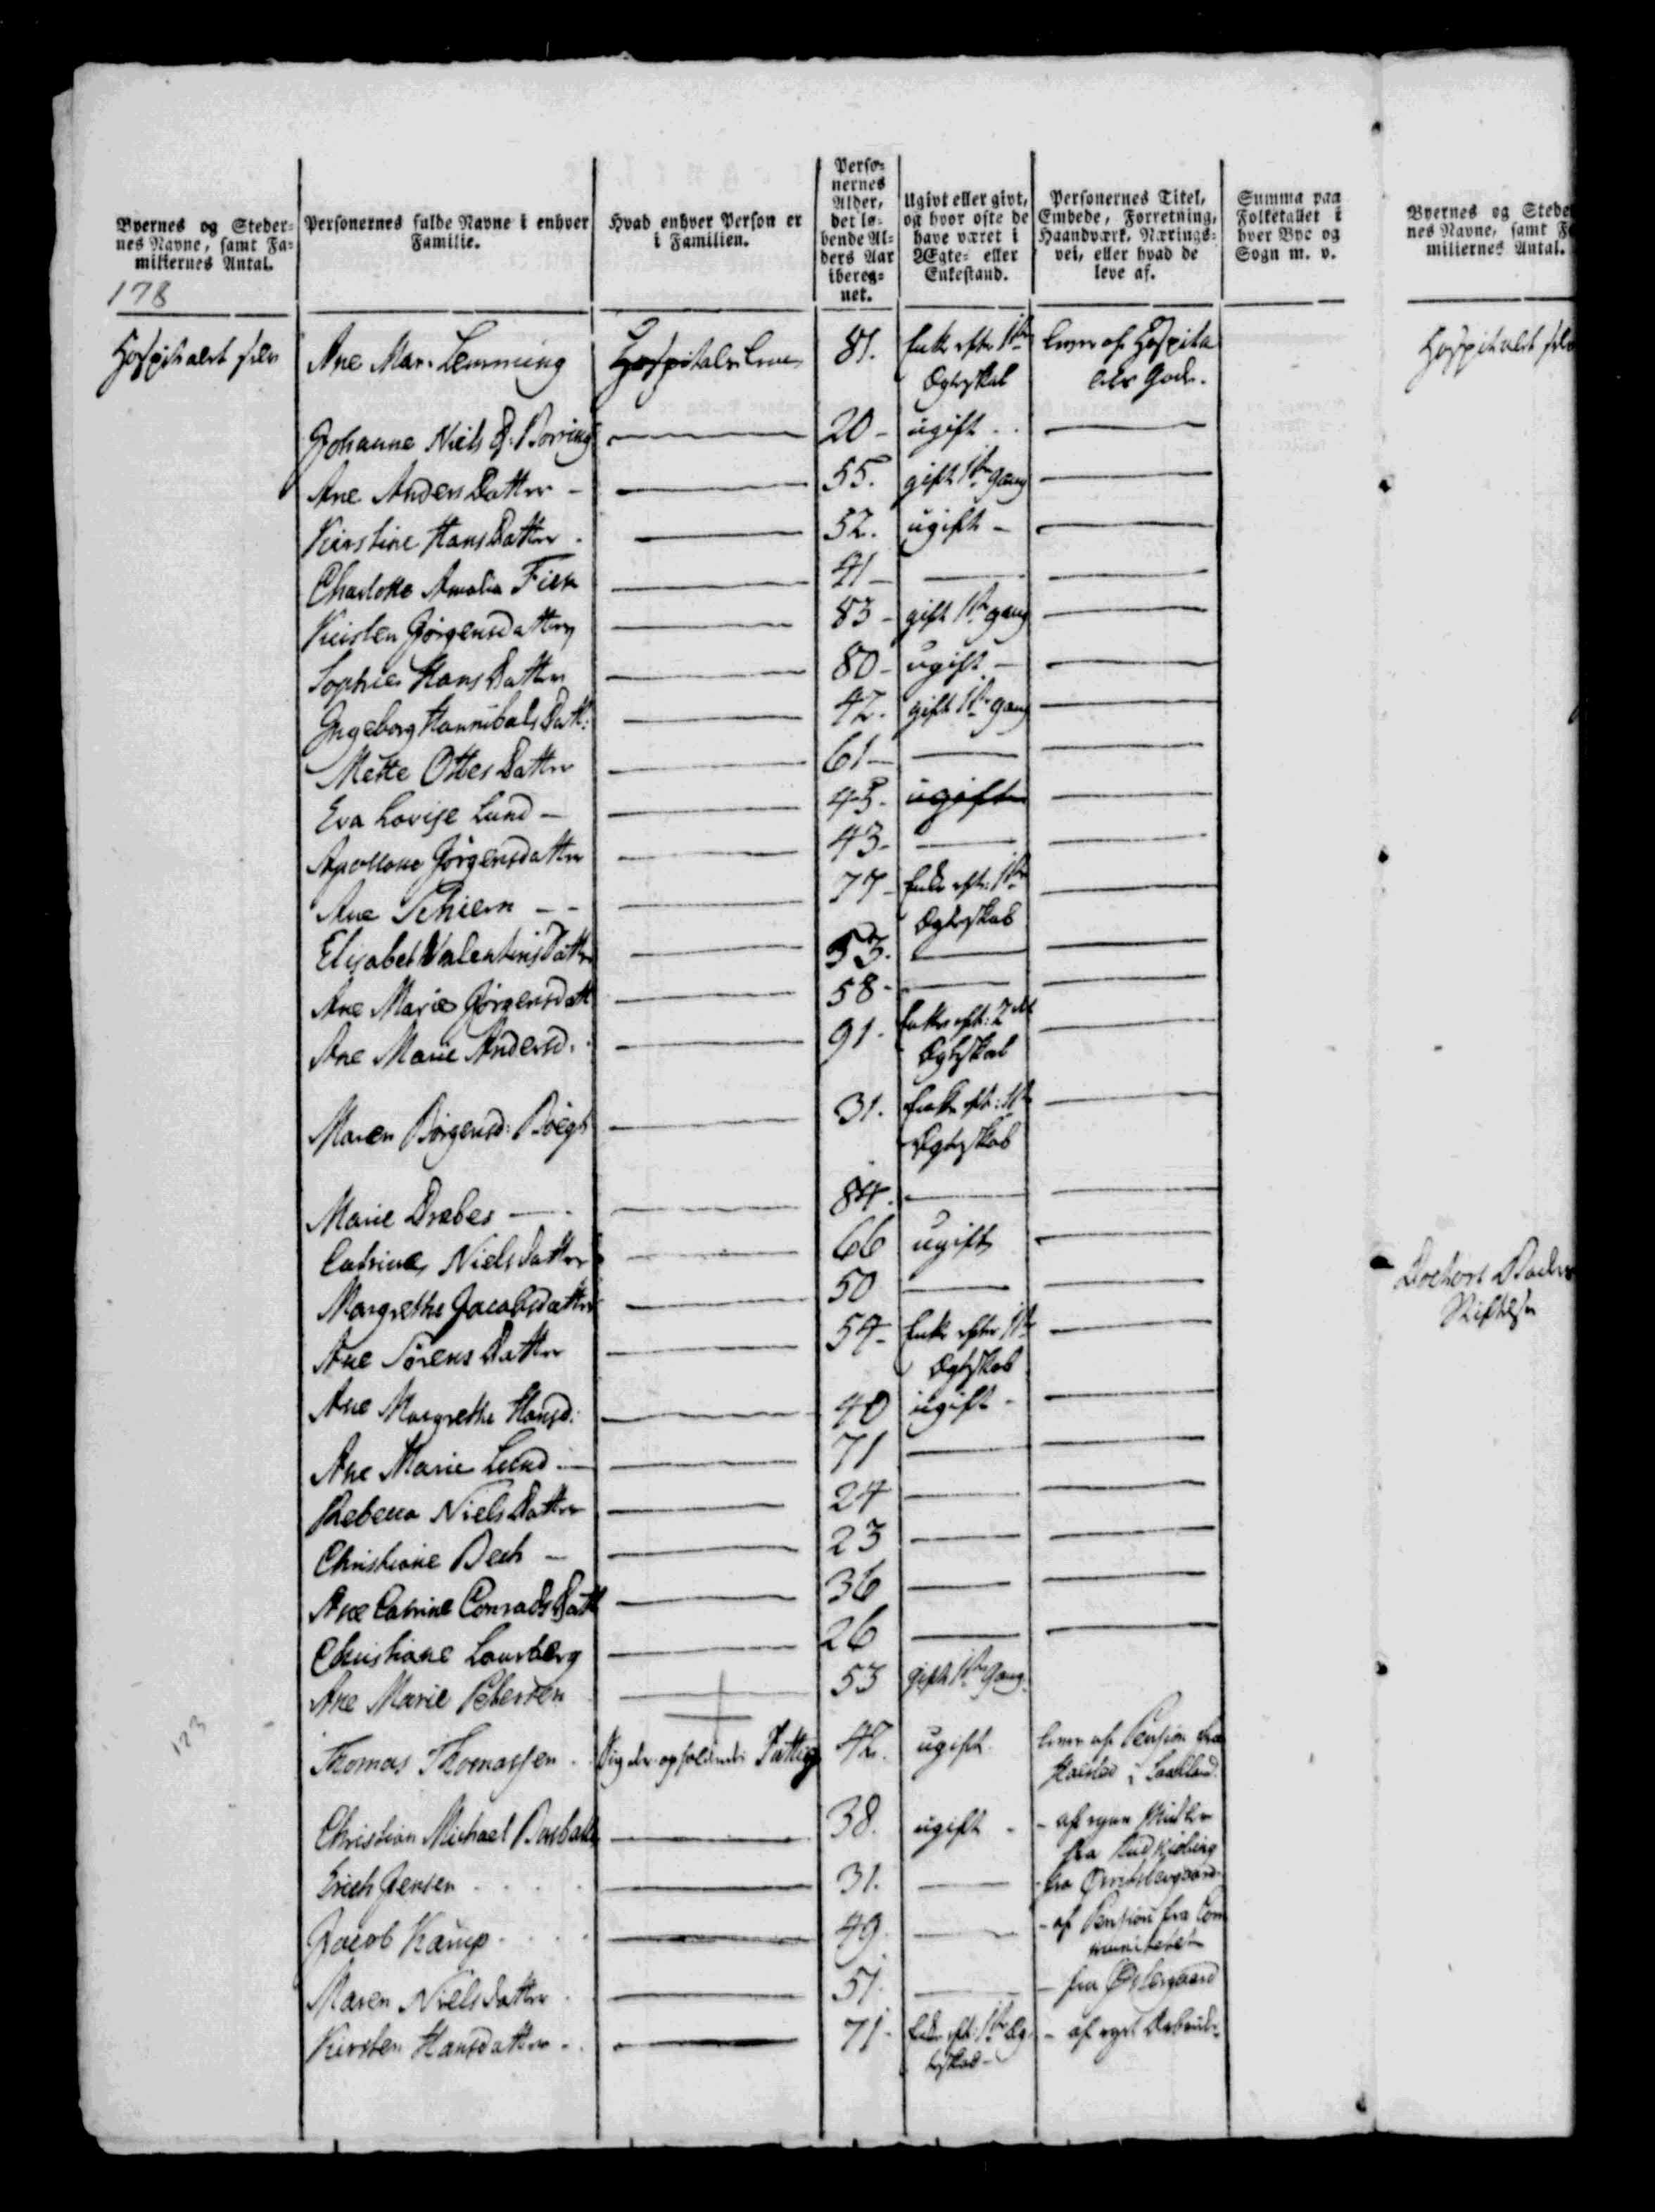 Byernes og Steder-
nes Navne, samt Fa-
miliernes Antal.
Personernes fulde Navne i enhver
Familie.
Hvad enhver Person er
i Familien.
Perso-
nernes
Alder,
det lø-
bende Al-
ders Aar
ibereg-
net.
Ugivt eller givt,
og hvor ofte de
have været i
Ægte- eller
Enkestand.
Personernes Titel,
Embede, Forretning,
Haandværk, Nærings-
vei, eller hvad de
leve af.
Summa paa
Folketallet i
hver Bye og
Sogn m. v.
Byernes og Stede
nes Navne, samt F
miliernes Antal.
178
Ane Mar: Lemming Hospitalslem 81. Enke efter 1ste lever af Hospita
Ægteskab lets Gods.
Johanne Niels D: Borring 20 - ugift
Ane Anders Datter - 55. gift 1ste gang
Kirstine Hans Datter 52. ugift -
Charlotte Amalia 41 -
Kirsten Jørgensdatter 83 - gift 1ste gang
Sophie Hans Datter 80 - ugift -
Ingeborg Hannibals Datt: 42. gift 1ste gang
Mette Ottes Datter 61 -
Eva Lovise Lund - 45. ugift
Apollone Jørgensdatter 43 -
Ane - - 77 - Enke eft: 1ste
Ægteskab
Elisabet Valentinsdatter 53.
Ane Marie Jørgensdatt 58 -
Ane Marie Andersd: 91. Enke eft: 2det
Ægteskab
Maren Børgensd: 31. Enke eft: 1ste
Ægteskab
Marie Drabes 84.
Catrine Nielsdatter 66 ugift
Margrethe Jacobsdatter 50
Ane Sörens Datter 54 - Enke efter 1ste
Ægteskab
Ane Margrethe Hansd: 40 ugift -
Ane Marie Lund 71
Rebecca Niels Datter 24
Christiane Bech - 23
Ane Catrine Conrads Datt 36
Christiane Laurberg 26
Ane Marie Petersen 53 gift 1ste gang.
Thomas Thomassen 42. ugift lever af Pension fra
Halsted i Laalland.
Christian Michael 38. ugift - - af egne Midler
fra Rudkiøbing
Erich Jensen 31. fra
Jacob Kamp 49. - af Pension fra Com
munitetet
Maren Niels datter 51. - fra Østergaard
Kirsten Hansdatter 71 - Enke eft: 1ste Æg-
teskab - - af eget
123
Hospitalet